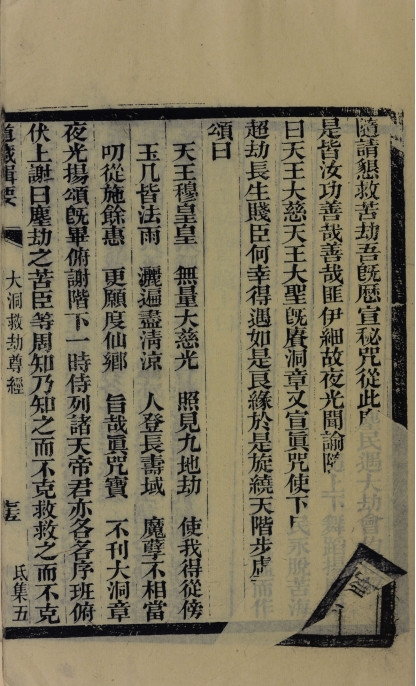 隨請懇救苦劫吾旣歷宣秘咒從此
是皆汝功善哉善哉匪伊細故夜光聞諭
曰天王大慈天王大聖旣賡洞章又宣眞咒使下民永脫苦海
超劫長生賤臣何幸得遇如是良緣於是旋繞天階步虛而作
頌曰
天王穆皇皇 無量大慈光 照見九地劫 使我得從傍
玉几皆法雨 灑遍盡清涼 人登長壽域 魔孽不相當
叨從施餘惠 更願度仙鄉 旨哉眞咒寶 不刊大洞章
夜光揚頌旣畢俯謝階下一時侍列諸天帝君亦各各序班俯
伏上謝曰塵劫之苦臣等周知乃知之而不克救救之而不克
道藏輯要 大洞救劫尊經 氐集五